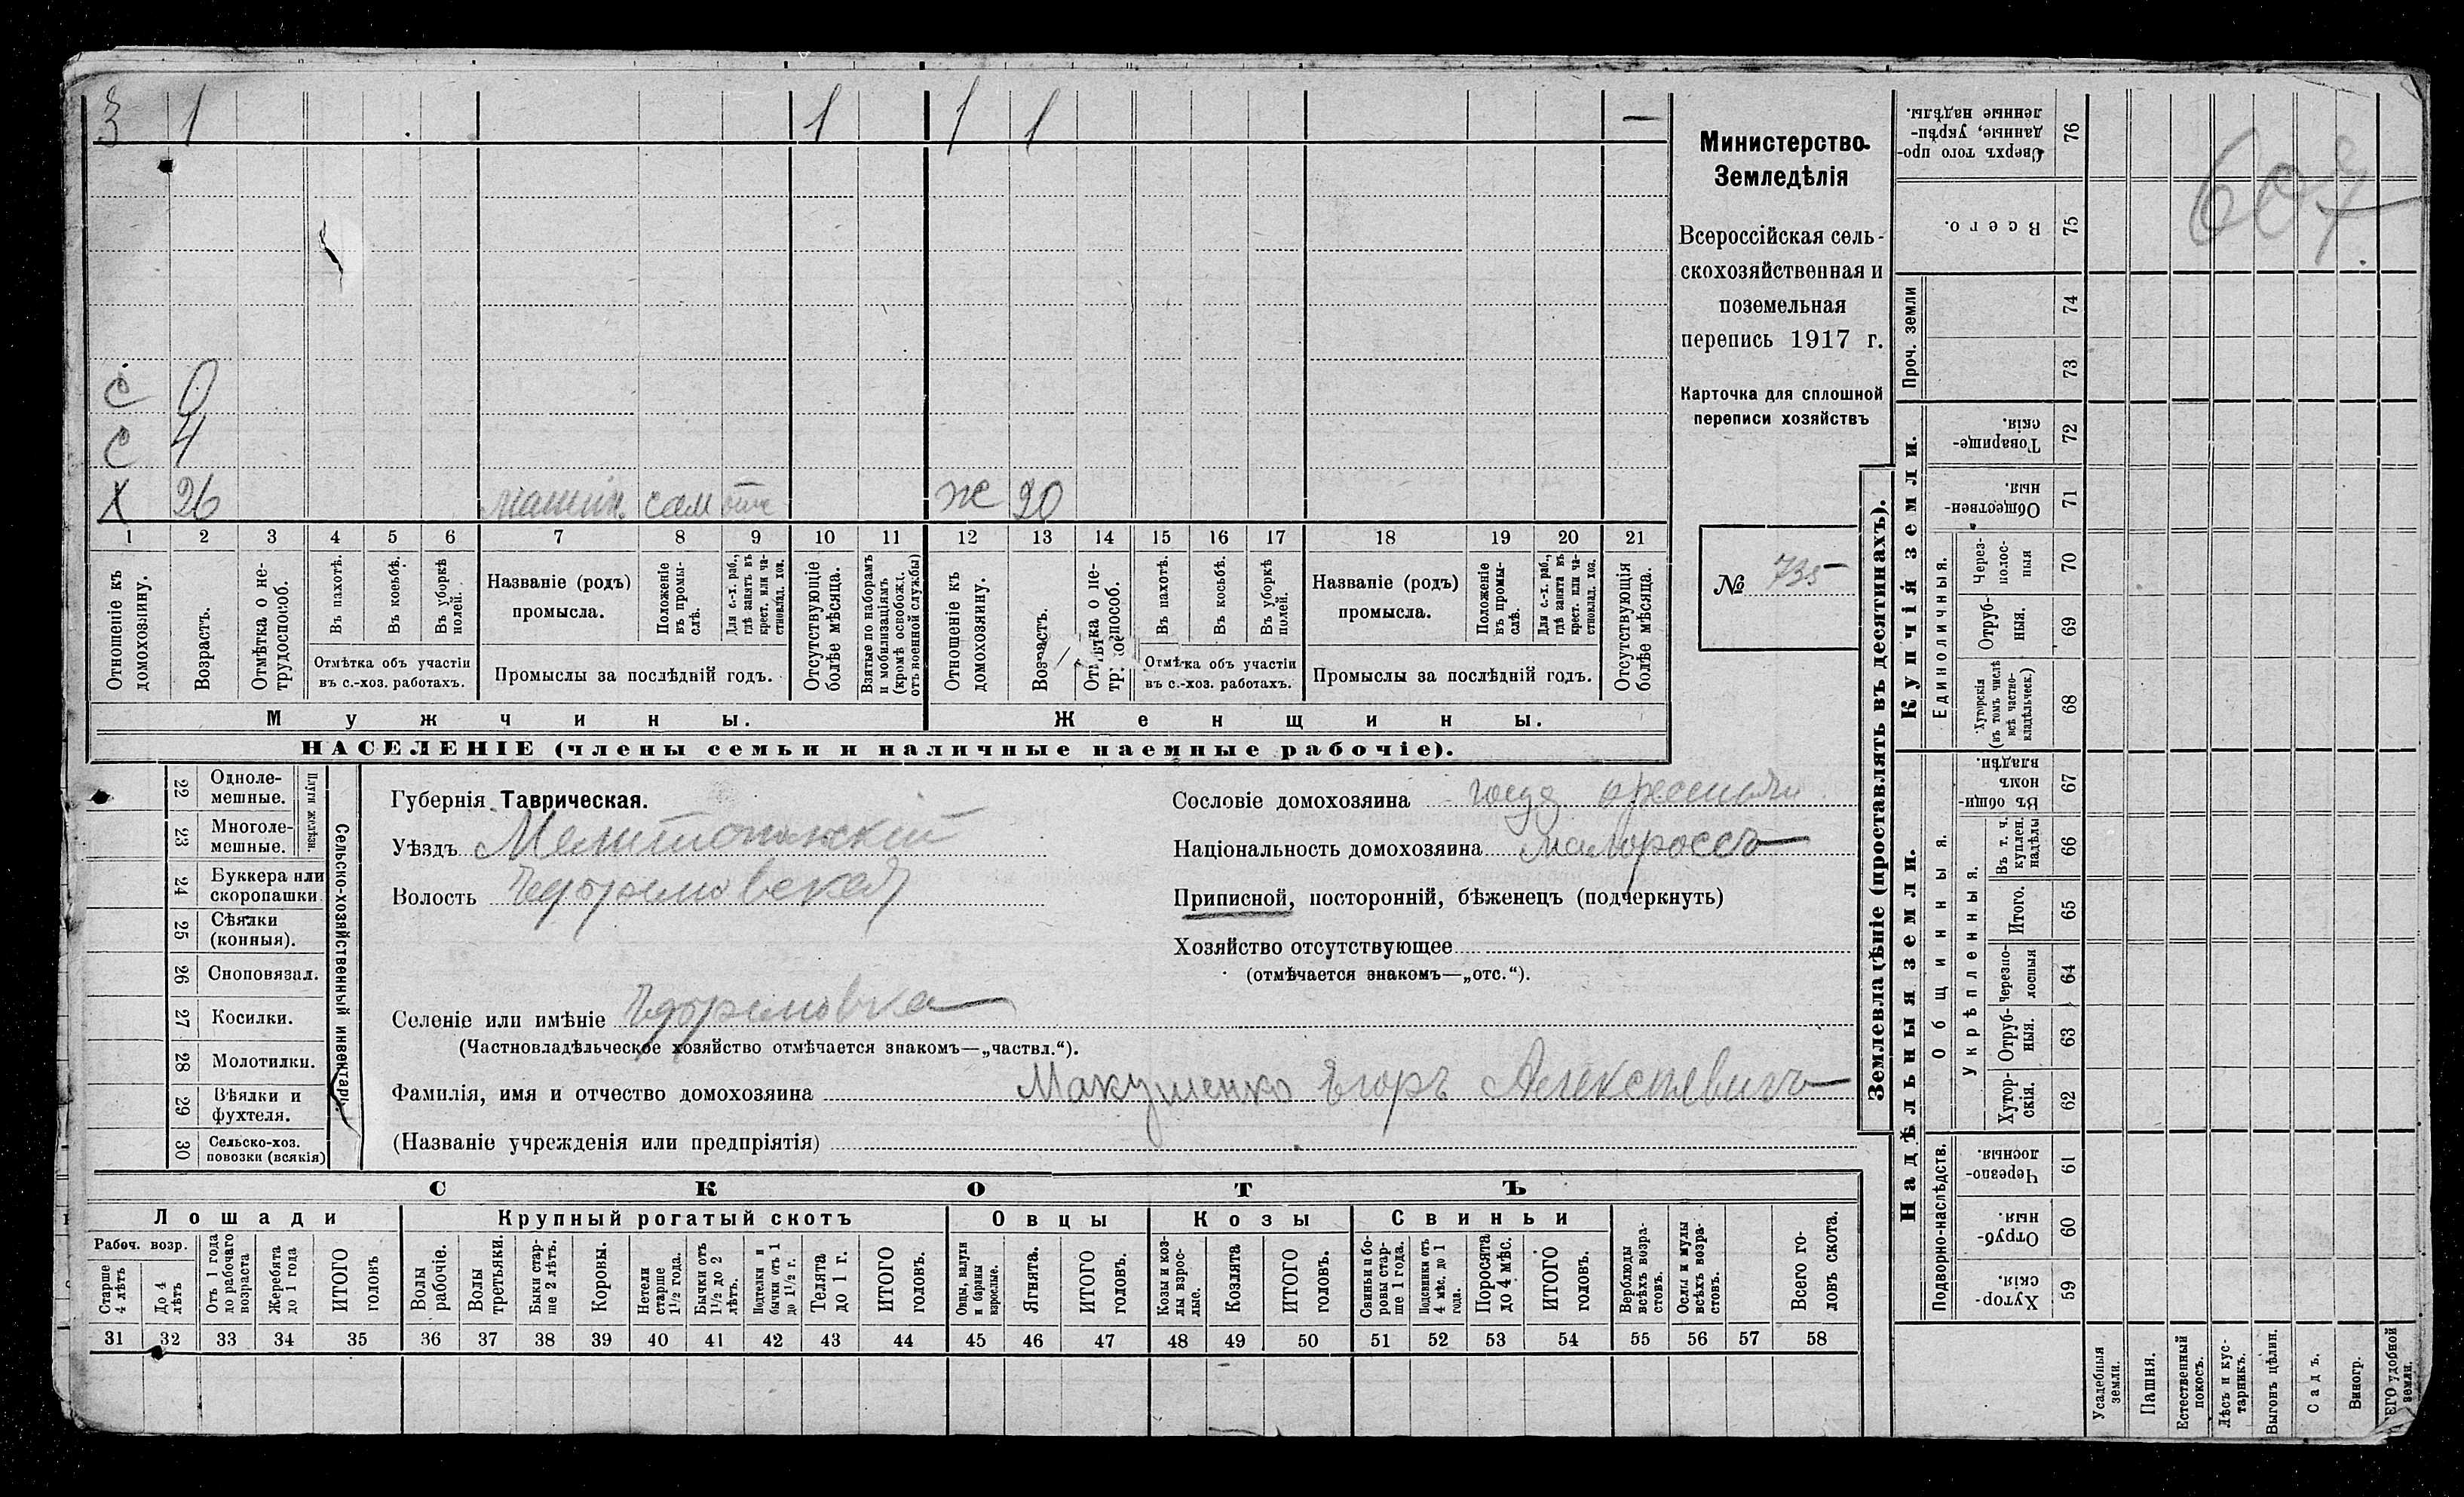 3 1 1 1 1 —
Министерство
Земледѣлія
Всероссійская сель-
скохозяйственная и
поземельная
перепись 1917 г.
Карточка для сплошной
переписи хозяйствъ
№ 735
607
с 0
с 4
х 26 машин. сам ж 20
1 2 3 4 5 6 7 8 9 10 11 12 13 14 15 16 17 18 19 20 21
Отношеніе къ домохозяину.
Возрастъ.
Отмѣтка о не-трудоспособ.
Въ пахотѣ.
Въ косьбѣ.
Въ уборкѣ полей.
Отмѣтка объ участіи
въ с.-хоз. работахъ.
Названіе (родъ)
промысла.
Положеніе въ промы-слѣ.
Для с.-х. раб., гдѣ занятъ въ крест. или ча-стновлад. хоз.
Промыслы за послѣдній годъ.
Отсутствующіе болѣе мѣсяца.
Взятые по наборамъ и мобилизаціямъ (кромѣ освобожд. отъ военной службы)
Отношеніе къ домохозяину.
Возрастъ.
Въ пахотѣ.
Въ косьбѣ.
Въ уборкѣ полей.
Отмѣтка объ участіи
въ с.-хоз. работахъ.
Названіе (родъ)
промысла.
Положеніе въ промы-слѣ.
Для с.-х. раб., гдѣ занята въ крест. или ча-стновлад. хоз.
Промыслы за послѣдній годъ.
Отсутствующія болѣе мѣсяца.
Мужчины.
Женщины.
НАСЕЛЕНІЕ (члены семьи и наличные наемные рабочіе).
Сельско-хозяйственный инвентарь.
Плуги желѣзн.
22 Одноле-мешные.
23 Многоле-мешные.
24 Буккера или скоропашки
25 Сѣялки (конныя).
26 Сноповязал.
27 Косилки.
28 Молотилки.
29 Вѣялки и фухтеля.
30 Сельско-хоз. повозки (всякія)
Губернія Таврическая.
Уѣздъ Мелитопольскій
Волость Ефремовская
Селеніе или имѣніе Ефремовка
(Частновладѣльческое хозяйство отмѣчается знакомъ—„частвл.“).
Сословіе домохозяина
Національность домохозяина малороссъ
Приписной, посторонній, бѣженецъ (подчеркнуть)
Хозяйство отсутствующее
(отмѣчается знакомъ—„отс.“).
Фамилія, имя и отчество домохозяина Макушенко Егоръ Алексѣевичъ
(Названіе учрежденія или предпріятія)
СКОТЪ
Лошади
Крупный рогатый скотъ
Овцы
Козы
Свиньи
Рабоч. возр.
Старше 4 лѣтъ
До 4 лѣтъ
Отъ 1 года до рабочаго возраста
Жеребята до 1 года
ИТОГО головъ
Волы рабочіе.
Волы третьяки.
Быки стар-ше 2 лѣтъ.
Коровы.
Нетели старше 1½ года.
Бычки отъ 1½ до 2 лѣтъ.
Подтелки и бычки отъ 1 до 1½ г.
Телята до 1 г.
ИТОГО головъ.
Овцы, валухи и бараны взрослые.
Ягнята.
ИТОГО головъ.
Козы и коз-лы взрос-лые.
Козлята
ИТОГО головъ.
Свиньи и бо-ровы стар-ше 1 года.
Подсвинки отъ 4 мѣс. до 1 года.
Поросята до 4 мѣс.
ИТОГО головъ.
Верблюды всѣхъ возра-стовъ.
Ослы и мулы всѣхъ возра-стовъ.
Всего го-ловъ скота.
31 32 33 34 35 36 37 38 39 40 41 42 43 44 45 46 47 48 49 50 51 52 53 54 55 56 57 58
Землевладѣніе (проставлять въ десятинахъ).
Надѣльныя земли.
Купчія земли.
Проч. земли
Подворно-наслѣдств.
Общинныя.
Укрѣпленныя.
Единоличныя.
76 Сверхъ того про-данные, укрѣп-ленные надѣлы.
75 Всего.
74
73
72 Товарище-скія.
71 Обществен-ныя.
70 Через-полос-ныя
69 Отруб-ныя.
68 Хуторскія (въ томъ числѣ всѣ частно-владѣльческ.)
67 Въ общин-номъ владѣн.
66 Въ т. ч. куплен. надѣлы
65 Итого.
64 Черезпо-лосныя
63 Отруб-ныя.
62 Хутор-скія.
61 Черезпо-лосныя.
60 Отруб-ныя.
59 Хутор-скія.
Усадебныя земли.
Пашня.
Естественный покосъ.
Лѣсъ и кус-тарникъ.
Выгонъ цѣлин.
Садъ.
Виногр.
ЕГО удобной земли.